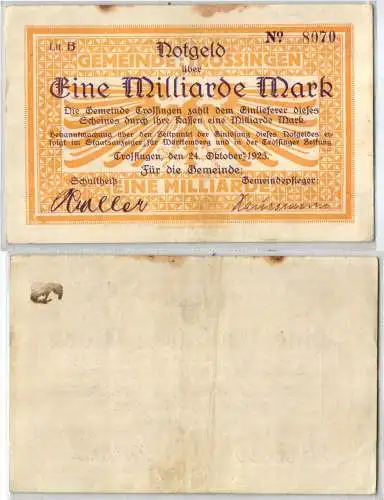 Lit. B
Notgeld
Nº 8070
GEMEINDE TROSSINGEN
über
Eine Milliarde Mark
Die Gemeinde Trossingen zahlt dem Einlieferer dieses
Scheines durch ihre Kassen eine Milliarde Mark
Bekanntmachung über den Zeitpunkt der Einlösung dieses Notgeldes er-
folgt im Staatsanzeiger für Württemberg und in der Trossinger Zeitung
Trossingen, den 24. Oktober 1923.
Für die Gemeinde:
Schultheiß
Gemeindepfleger:
EINE MILLIARDE